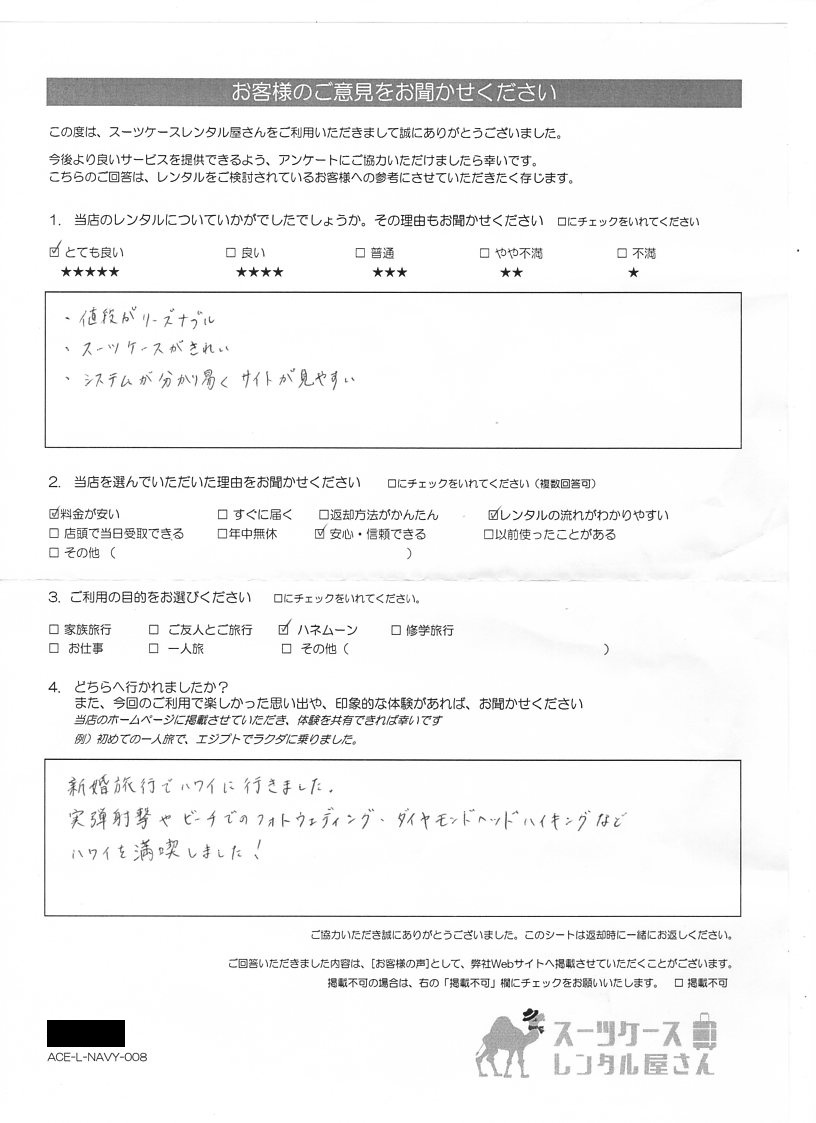 お客様のご意見をお聞かせください
この度は、スーツケースレンタル屋さんをご利用いただきまして誠にありがとうございました。
今後より良いサービスを提供できるよう、アンケートにご協力いただけましたら幸いです。
こちらのご回答は、レンタルをご検討されているお客様への参考にさせていただきたく存じます。
1. 当店のレンタルについていかがでしたでしょうか。その理由もお聞かせください □にチェックをいれてください
☑ とても良い □ 良い □ 普通 □ やや不満 □ 不満
★★★★★ ★★★★ ★★★ ★★ ★
・値段がリーズナブル
・スーツケースがきれい
・システムが分かり易くサイトが見やすい
2. 当店を選んでいただいた理由をお聞かせください □にチェックをいれてください（複数回答可）
☑料金が安い □ すぐに届く □返却方法がかんたん ☑レンタルの流れがわかりやすい
□ 店頭で当日受取できる □年中無休 ☑ 安心・信頼できる □以前使ったことがある
□ その他（ ）
3. ご利用の目的をお選びください □にチェックをいれてください。
□ 家族旅行 □ ご友人とご旅行 ☑ ハネムーン □ 修学旅行
□ お仕事 □ 一人旅 □ その他（ ）
4. どちらへ行かれましたか？
また、今回のご利用で楽しかった思い出や、印象的な体験があれば、お聞かせください
当店のホームページに掲載させていただき、体験を共有できれば幸いです
例）初めての一人旅で、エジプトでラクダに乗りました。
新婚旅行でハワイに行きました。
実弾射撃やビーチでのフォトウェディング、ダイヤモンドヘッドハイキングなど
ハワイを満喫しました！
ご協力いただき誠にありがとうございました。このシートは返却時に一緒にお返しください。
ご回答いただきました内容は、[お客様の声]として、弊社Webサイトへ掲載させていただくことがございます。
掲載不可の場合は、右の「掲載不可」欄にチェックをお願いいたします。 □ 掲載不可
ACE-L-NAVY-008
スーツケース
レンタル屋さん